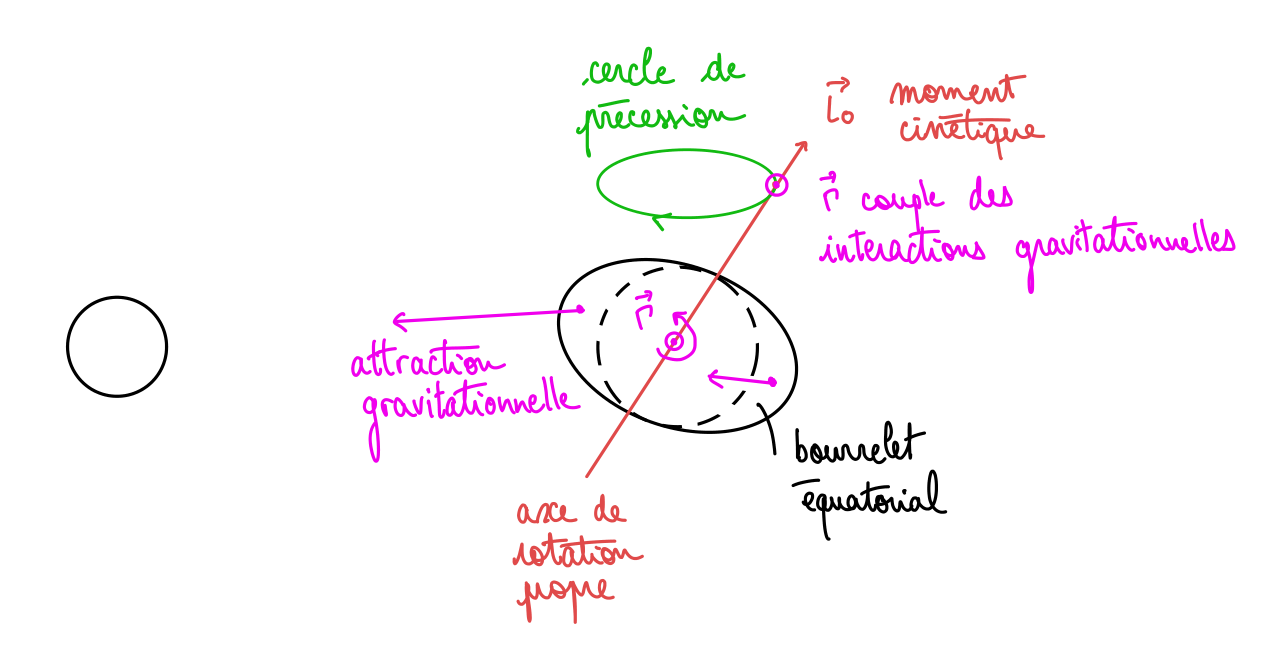 cercle de
précession
L⃗₀ moment
cinétique
Γ⃗ couple des
interactions gravitationnelles
Γ⃗
attraction
gravitationnelle
bourrelet
équatorial
axe de
rotation
propre